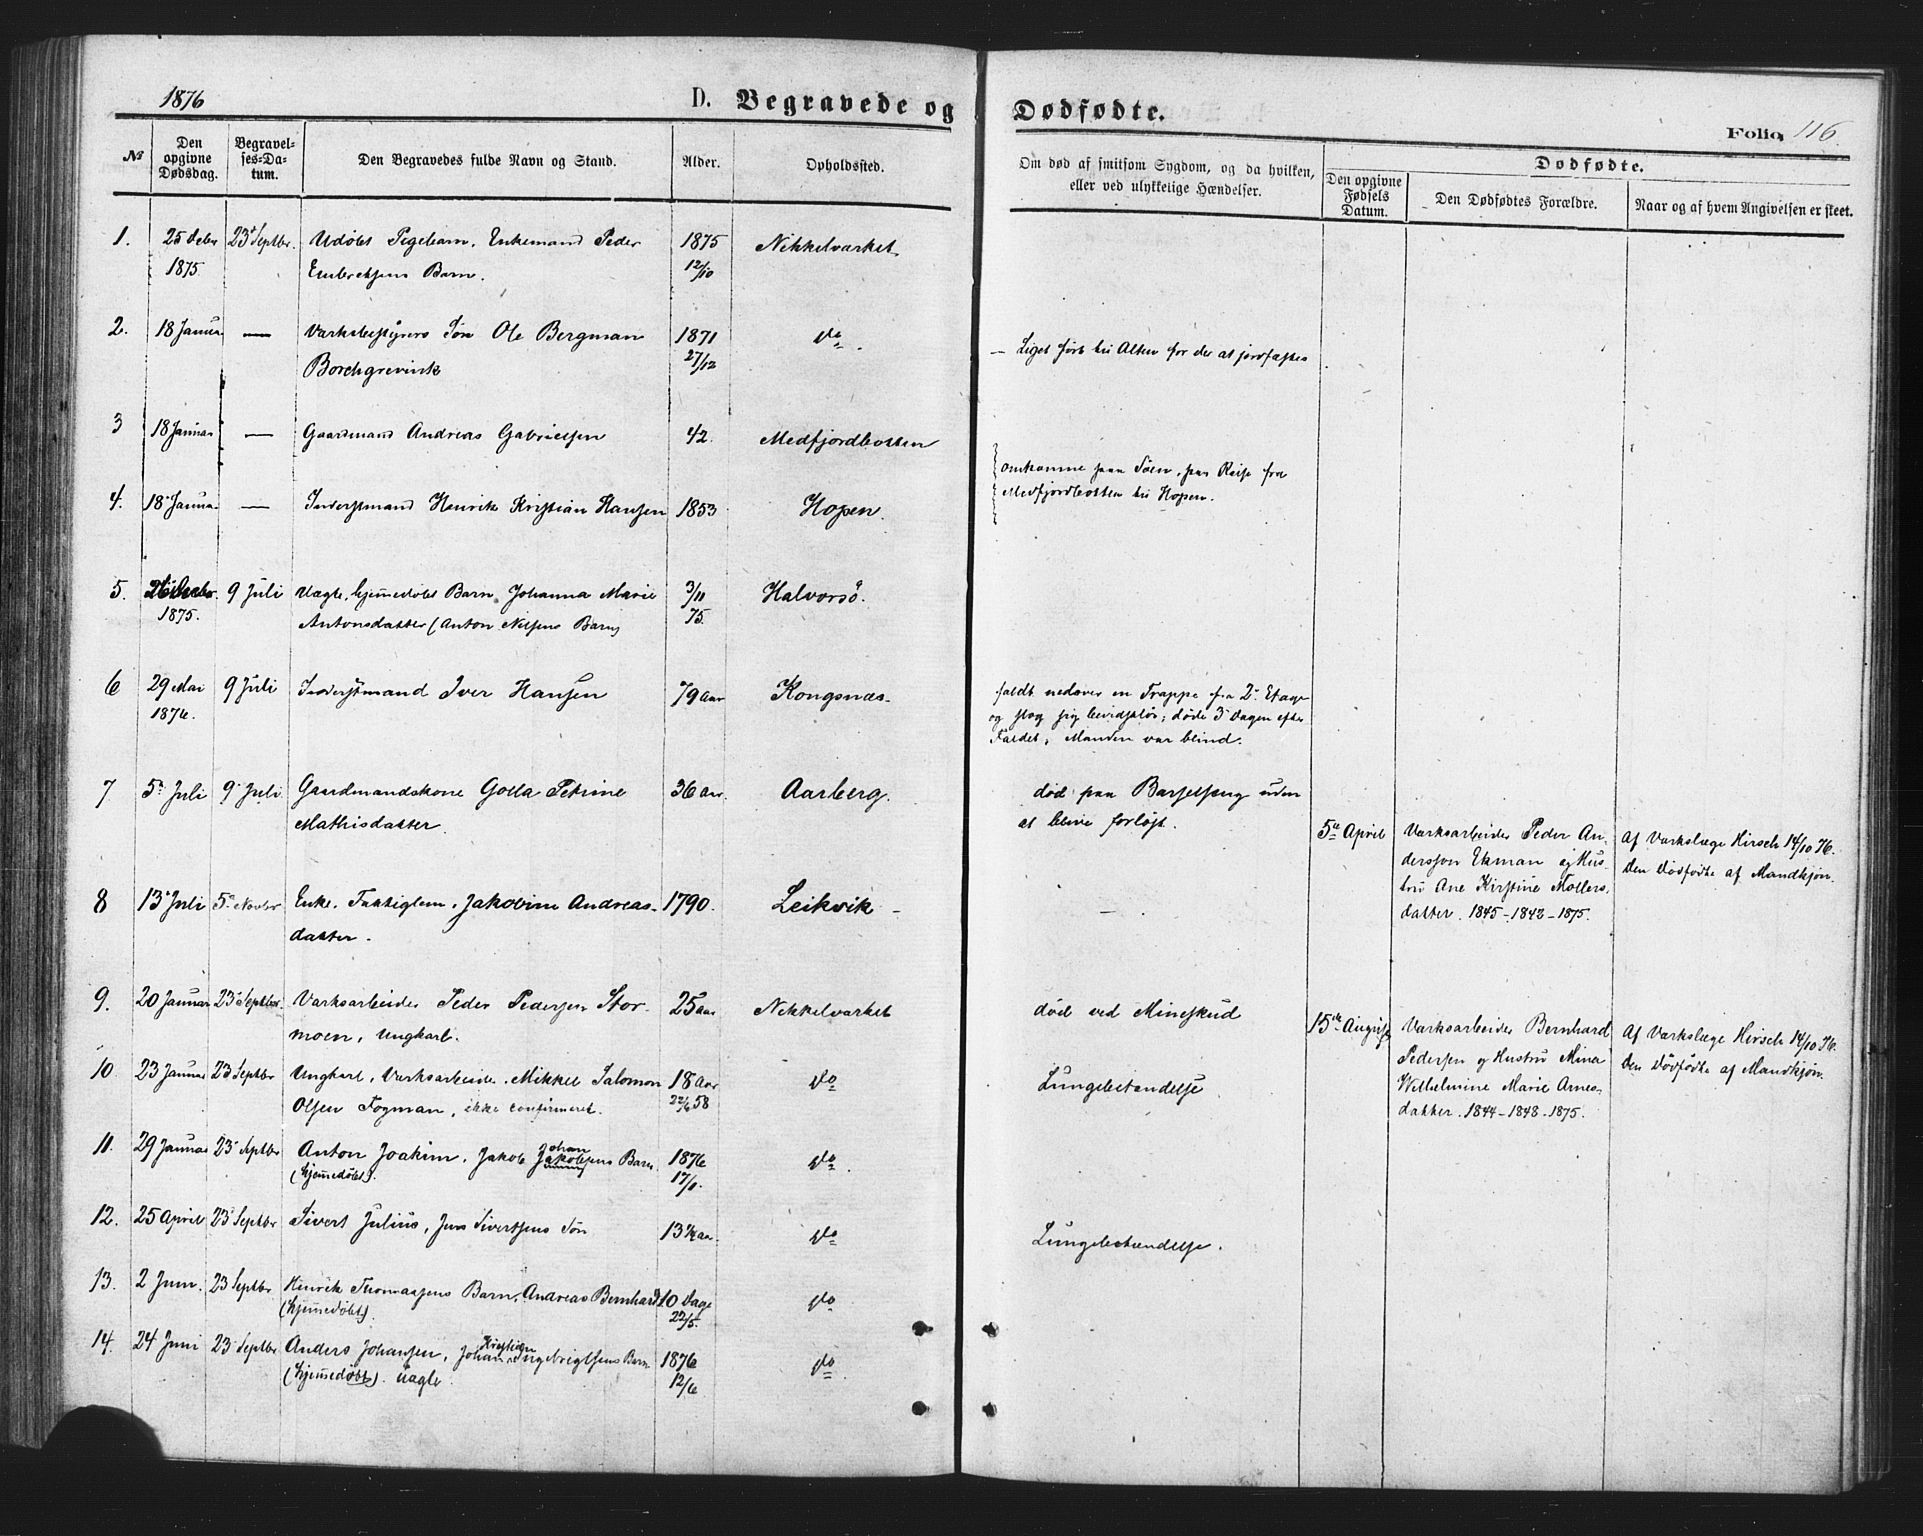 1876
D. Begravede og
Dødfødte.
Folio 116.
№
Den opgivne Dødsdag.
Begravel-ses-Da-tum.
Den Begravedes fulde Navn og Stand.
Alder.
Opholdssted.
Om død af smitsom Sygdom, og da hvilken,
eller ved ulykkelige Hændelser.
Dødfødte.
Den opgivne Fødsels Datum.
Den Dødfødtes Forældre.
Naar og af hvem Angivelsen er skeet.
1. 25 Decbr 23de Septbr. Udøbt Pigebarn, Enkemand Peder 1875 Nikkelværket
1875 Embretsens Barn. 12/10
2. 18 Januar — Værksbestyrers Søn Ole Bergman 1871 do
Borchgrevink 27/12
— Liget ført til Alten for der at jordfæstes
3 18 Januar — Gaardmand Andreas Gabrielsen 42. Medfjordbotten
omkomne paa Søen, paa Reise fra
Medfjordbotten til Hopen.
4. 18 Januar — Inderstmand Henrik Kristian Hansen 1853 Hopen.
5. 9 Juli Uægte, hjemmedøbt Barn Johanna Marie 3/11 Halvorsö.
1875. Antonsdatter (Anton Nilsens Barn) 75.
6 29 Mai 9 Juli Inderstmand Iver Hansen 79 Aar Kongsnæs.
1876.
faldt nedover en Trappe fra 2. Etage
og slog sig bevidstløs; døde 3 Dagen efter
Faldet; Manden var blind.
7 5 Juli 9 Juli Gaardmandskone Golla Petrine 36 Aar. Aarberg.
Mathisdatter.
død paa Barselseng uden
at blive forløst.
8 13 Juli 5 Novbr Enke, Fattiglem, Jakobine Andreas- 1790. Leikvik —
datter.
5te April Værksarbeider Peder An-
dersson Ekman og Hus-
tru Ane Kirstine Mollers-
datter. 1845 - 1842 - 1875.
Af Værkslæge Hirsch 14/10 76.
Den Dødfødte af Mandkjøn.
9. 20 Januar 23 Septbr. Værksarbeider Peder Pedersen Stor- 25 Aar Nikkelværket
moen, Ungkarl.
død ved Mineskud
10 23 Januar 23 Septbr Ungkarl, Værksarbeider, Mikkel Salomon 18 Aar do
Olsen Fogman, ikke confirmeret. 22/6 58
Lungebetændelse
15de August Værksarbeider Bernhard
Pedersen og Hustru Mina
Wilhelmine Marie Arnes-
datter. 1844 - 1848 - 1875.
Af Værkslæge Hirsch 14/10 76.
Den Dødfødte af Mandkjøn.
11. 29 Januar 23 Septbr Anton Joakim, Jakob Johan Jakobsens Barn 1876 do.
(hjemmedøbt). 17/1.
12. 25 April 23 Septbr Sivert Julius, Jens Sivertsens Søn 13 1/2 Aar. do
Lungebetændelse.
13. 2 Juni. 23 Septbr Henrik Thomassens Barn, Andreas Bernhard 10 Dage do
(hjemmedøbt). 22/5.
14. 24 Juni 23 Septbr Anders Johansen, Johan Kristian Ingebrigtsens Barn 1876 do
(hjemmedøbt). Uægte. 12/6